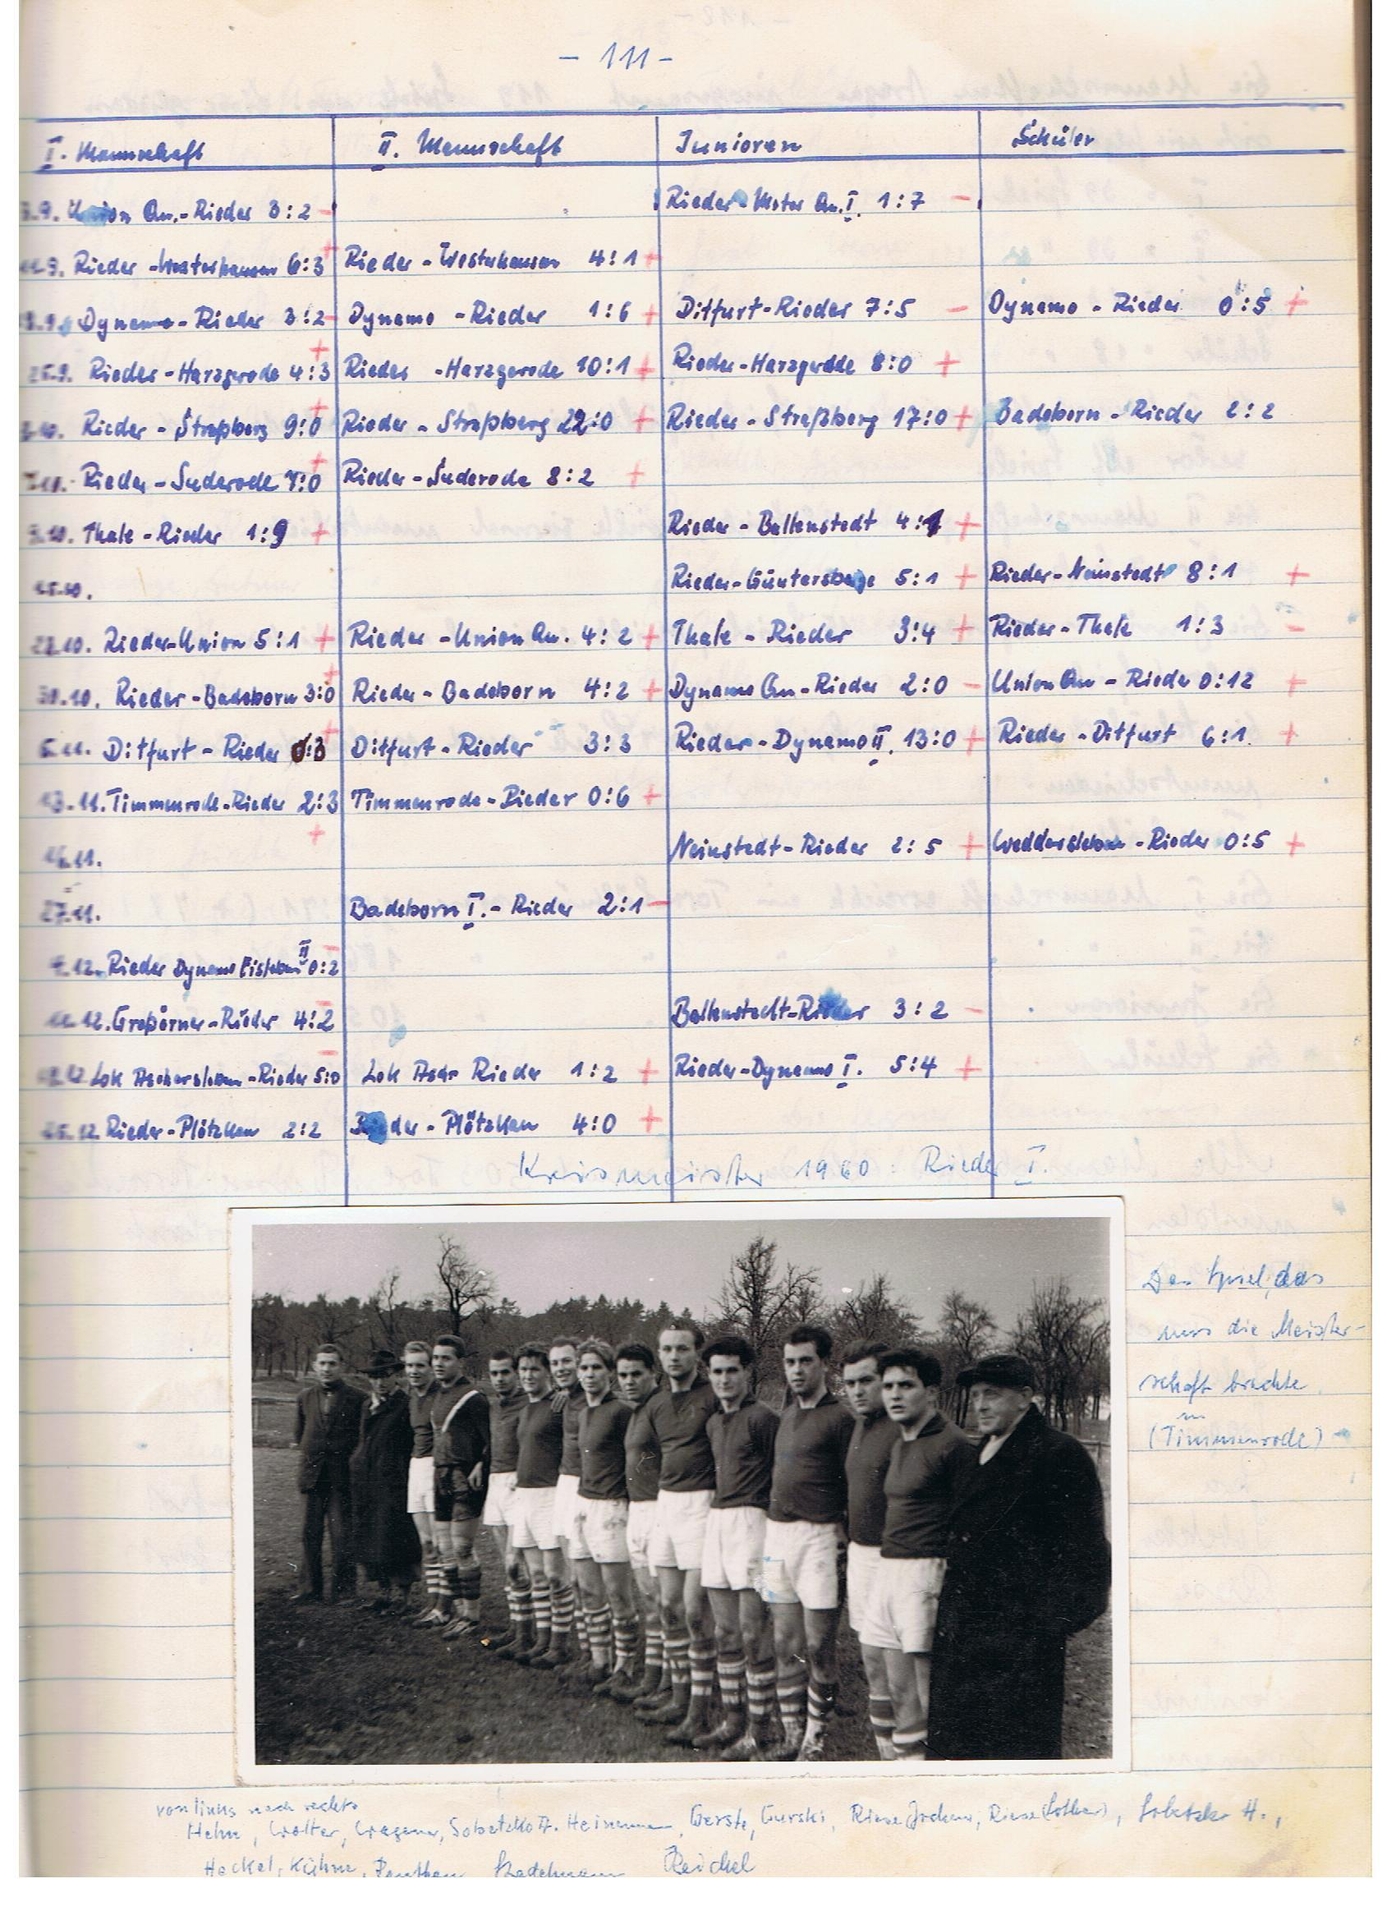 - 111 -
I. Mannschaft II. Mannschaft Junioren Schüler
Union Qu.-Rieder 3:2 - Rieder-Motor Qu. I. 1:7 -
Rieder-Westerhausen 6:3 + Rieder-Westerhausen 4:1 +
Dynamo-Rieder 3:2 - Dynamo-Rieder 1:6 + Ditfurt-Rieder 7:5 - Dynamo-Rieder 0:5 +
25.9. Rieder-Harzgerode 4:3 + Rieder-Harzgerode 10:1 + Rieder-Harzgerode 8:0 +
Rieder-Straßberg 9:0 + Rieder-Straßberg 22:0 + Rieder-Straßberg 17:0 + Badeborn-Rieder 2:2
Rieder-Suderode :0 + Rieder-Suderode 8:2 +
Thale-Rieder 1:9 + Rieder-Ballenstedt 4:1 +
Rieder-Güntersberge 5:1 + Rieder-Neinstedt 8:1 +
Rieder-Union 5:1 + Rieder-Union Qu. 4:2 + Thale-Rieder 3:4 + Rieder-Thale 1:3 -
30.10. Rieder-Badeborn 3:0 + Rieder-Badeborn 4:2 + Dynamo Qu-Rieder 2:0 - Union Qu-Rieder 0:12 +
6.11. Ditfurt-Rieder 0:3 + Ditfurt-Rieder 3:3 Rieder-Dynamo II. 13:0 + Rieder-Ditfurt 6:1. +
13.11. Timmenrode-Rieder 2:3 + Timmenrode-Rieder 0:6 +
Neinstedt-Rieder 2:5 + Weddersleben-Rieder 0:5 +
27.11. Badeborn I.-Rieder 2:1 -
4.12. Rieder Dynamo Eisleben II 0:2 -
11.12. Großörner-Rieder 4:2 - Ballenstedt-Rieder 3:2 -
Lok Aschersleben-Rieder 5:0 - Lok Aschr Rieder 1:2 + Rieder-Dynamo I. 5:4 +
Rieder-Plötzkau 2:2 Rieder-Plötzkau 4:0 +
Kreismeister 1960: Rieder I.
Das Spiel, das
uns die Meister-
schaft brachte
(in Timmenrode)
von links nach rechts
Hehn, Wolter, Wagener, Sobetzko A. Heinemann, Gerste, Gurski, Riese Jochen, Riese (Lothar), Sobetzko H.,
Heckel, Kühne, Stadelmann Reichel